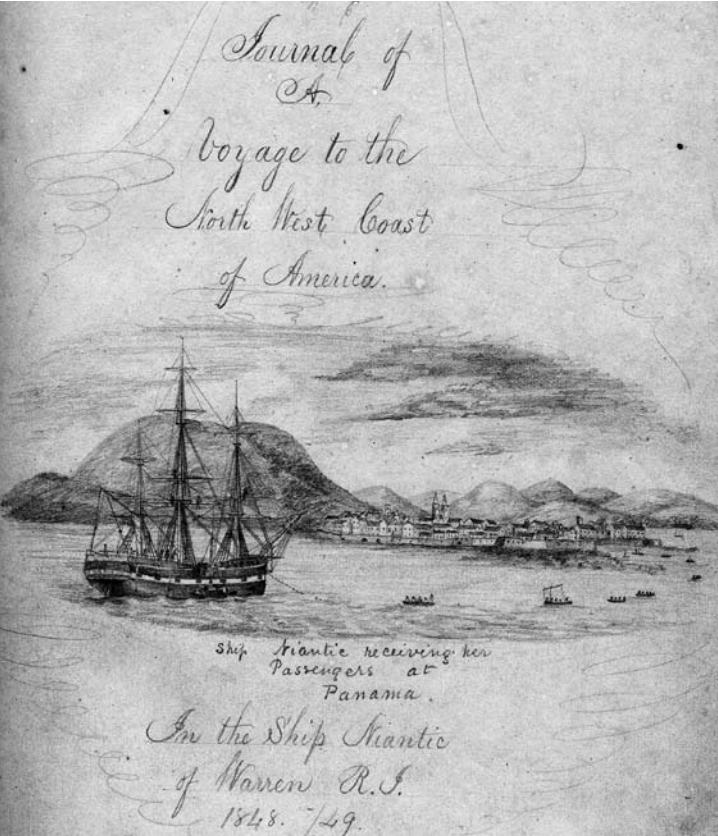 Journal of
A
Voyage to the
North West Coast
of America.
Ship Niantic receiving her
Passengers at
Panama.
In the Ship Niantic
of Warren R.I.
1848. /49.